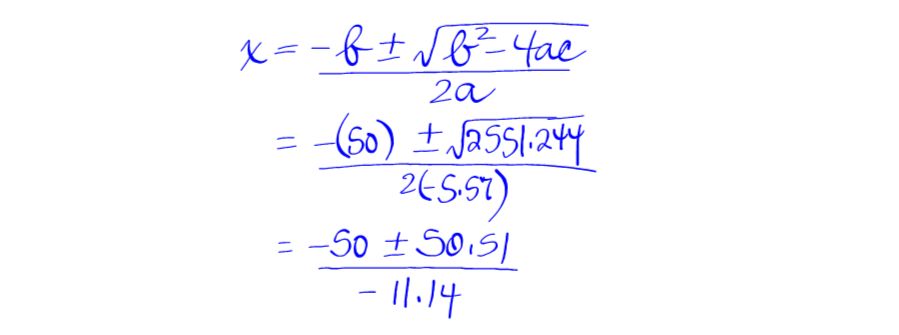 x = -b ± √b² - 4ac
2a
= -(50) ± √2551.244
2(-5.57)
= -50 ± 50.51
-11.14